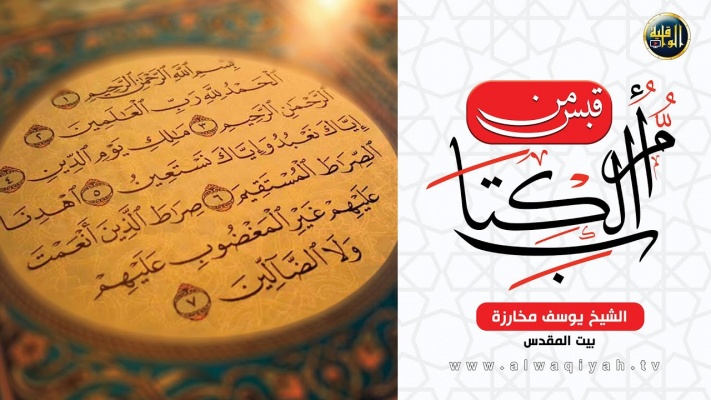 بِسْمِ ٱللَّهِ ٱلرَّحْمَٰنِ ٱلرَّحِيمِ ١
ٱلْحَمْدُ لِلَّهِ رَبِّ ٱلْعَالَمِينَ ٢
ٱلرَّحْمَٰنِ ٱلرَّحِيمِ ٣ مَالِكِ يَوْمِ ٱلدِّينِ ٤
إِيَّاكَ نَعْبُدُ وَإِيَّاكَ نَسْتَعِينُ ٥ ٱهْدِنَا
ٱلصِّرَاطَ ٱلْمُسْتَقِيمَ ٦ صِرَاطَ ٱلَّذِينَ أَنْعَمْتَ
عَلَيْهِمْ غَيْرِ ٱلْمَغْضُوبِ عَلَيْهِمْ
وَلَا ٱلضَّآلِّينَ ٧
الواقية
قبس من
أُمُّ الكتاب
الشيخ يوسف مخارزة
بيت المقدس
www.alwaqiyah.tv